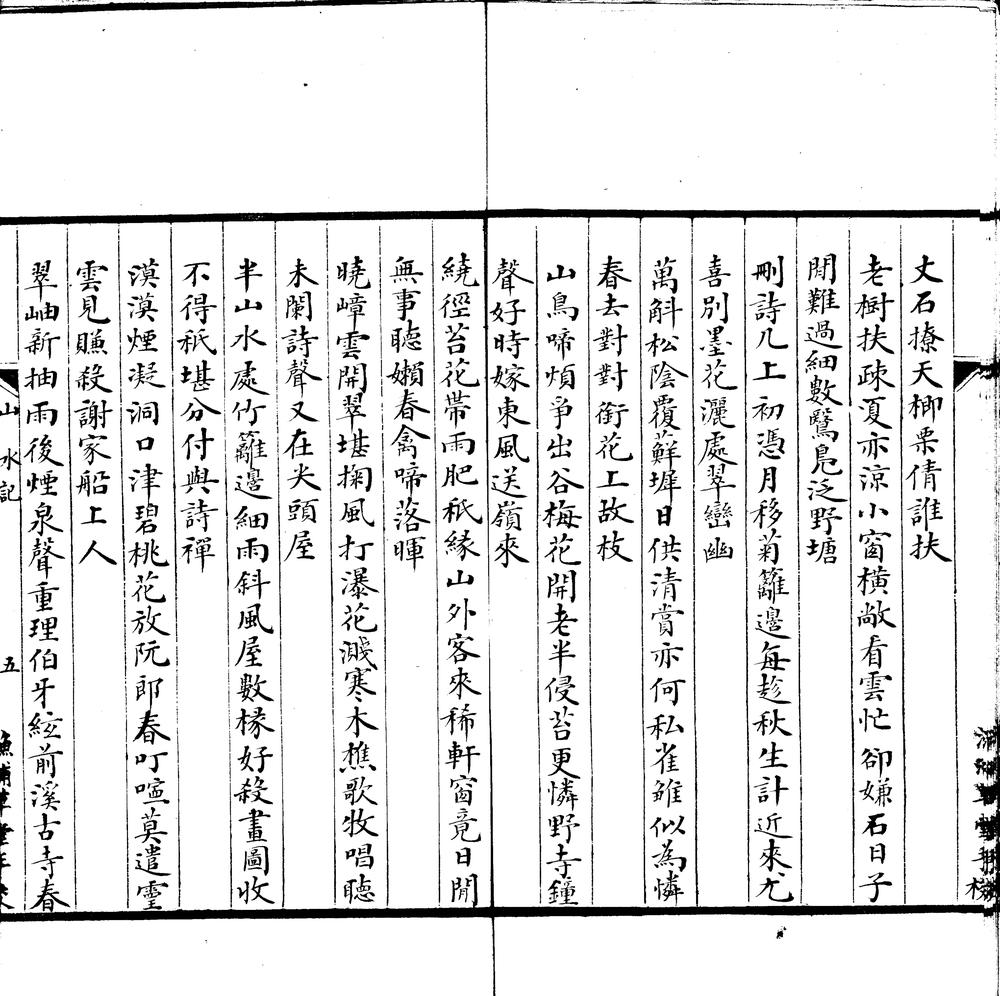 丈石撩天楖栗倩誰扶
老樹扶疎夏亦涼小窗橫敞看雲忙卻嫌石日子
閒難過細數鷖鳧泛野塘
刪詩几上初憑月移菊籬邊每趁秋生計近來尤
喜別墨花灑處翠巒幽
萬斛松陰覆蘚墀日供清賞亦何私雀雛似為憐
春去對對銜花上故枝
山鳥啼煩爭出谷梅花開老半侵苔更憐野寺鐘
聲好時嫁東風送嶺來
繞徑苔花帶雨肥秖緣山外客來稀軒窗竟日閒
無事聽嬾春禽啼落暉
曉嶂雲開翠堪掬風打瀑花濺寒木樵歌牧唱聽
未闌詩聲又在尖頭屋
半山水處竹籬邊細雨斜風屋數椽好殺畫圖收
不得秖堪分付與詩禪
漠漠煙凝洞口津碧桃花放阮郎春叮嚀莫遣靈
雲見賺殺謝家船上人
翠岫新抽雨後煙泉聲重理伯牙絃前溪古寺春
山水記
五